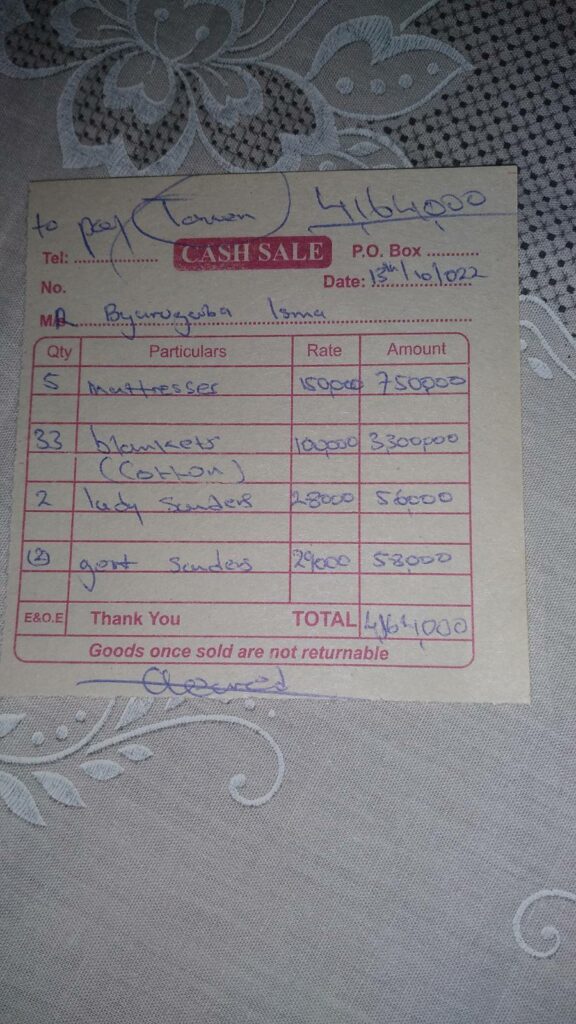 to pay Tarven 4,164,000
Tel: ............... CASH SALE P.O. Box ..........
No. Date: 13th/10/022
MR Byarugaba Isma
Qty Particulars Rate Amount
5 Mattresses 150,000 750,000
33 blankets 100,000 3300,000
(Cotton)
2 lady Sanders 28000 56,000
(2) gent Sanders 29,000 58,000
E&O.E Thank You TOTAL 4,164,000
Goods once sold are not returnable
Cleared